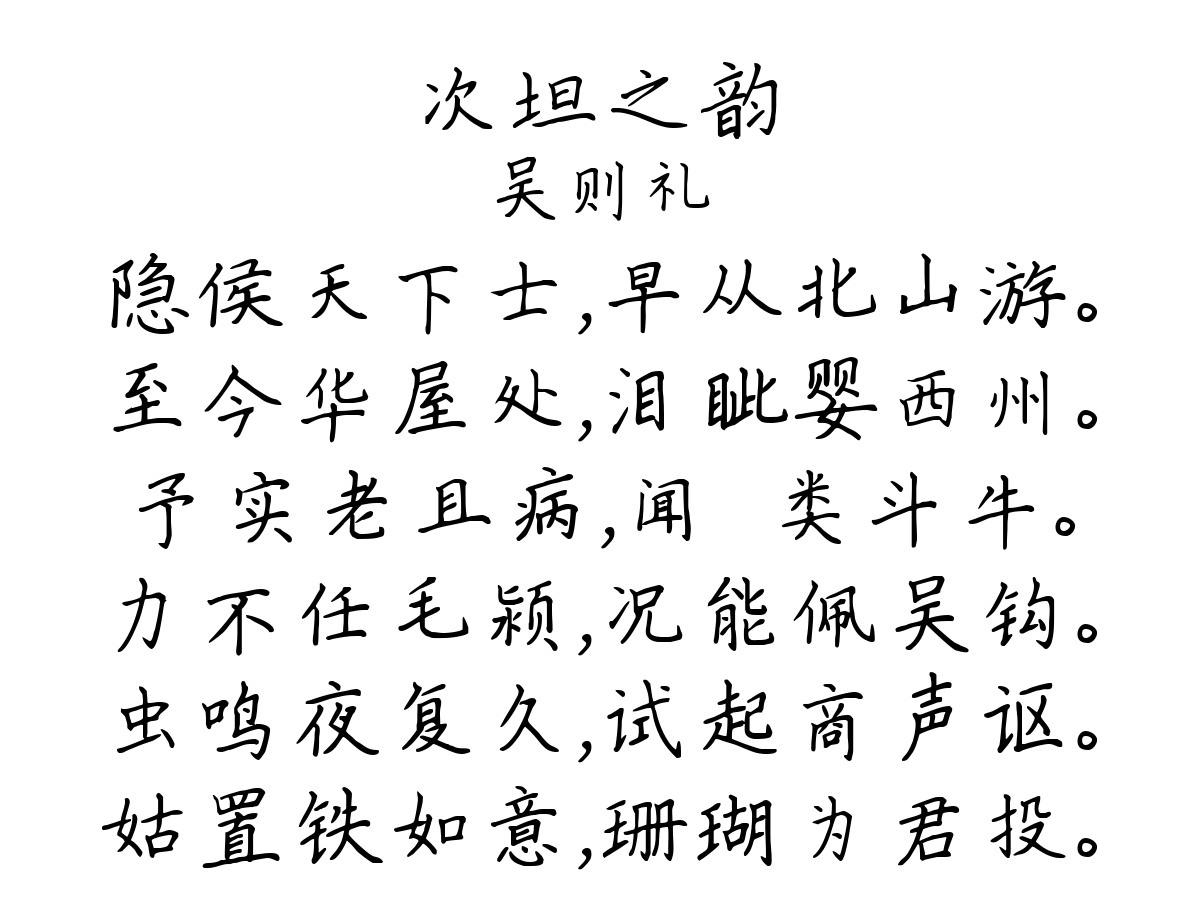 次坦之韵
吴则礼
隐侯天下士,早从北山游。
至今华屋处,泪眦婴西州。
予实老且病,闻 类斗牛。
力不任毛颍,况能佩吴钩。
虫鸣夜复久,试起商声讴。
姑置铁如意,珊瑚为君投。